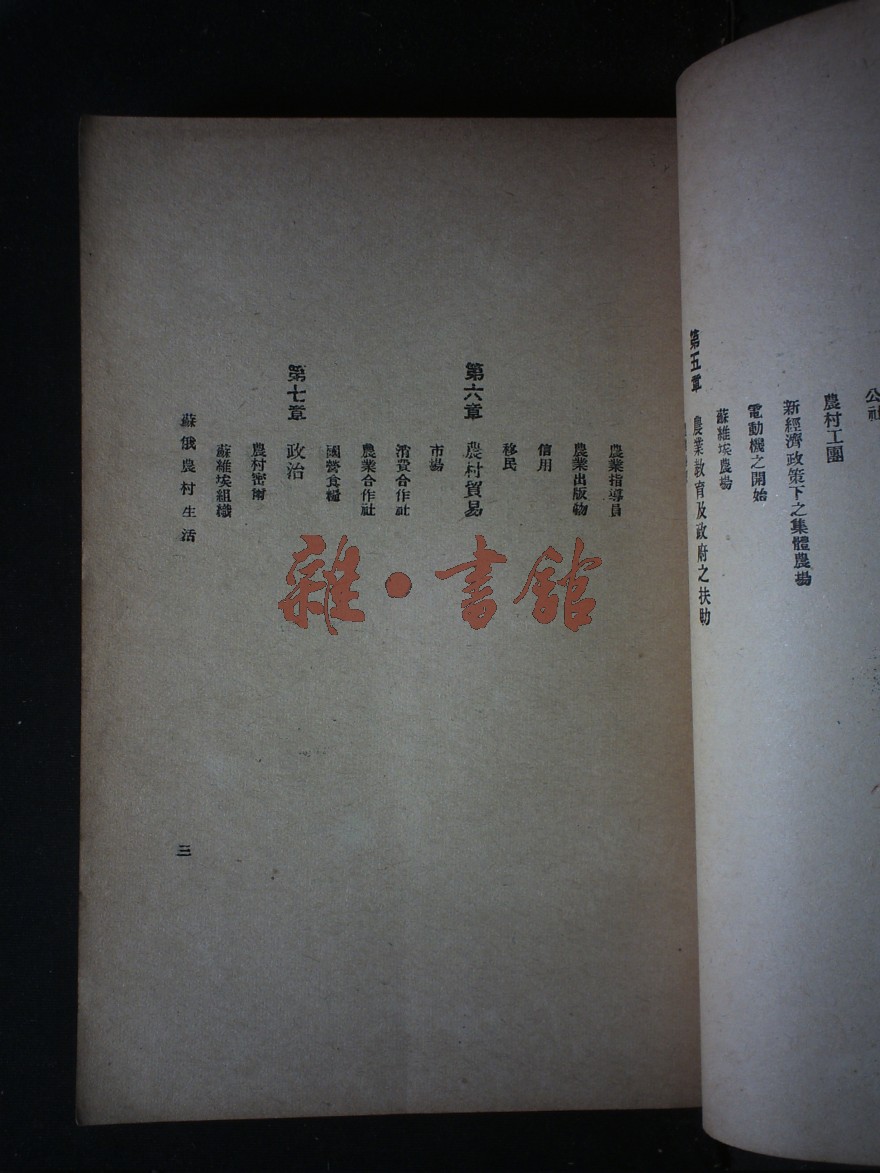 公社
農村工團
新經濟政策下之集體農場
電動機之開始
蘇維埃農場
第五章 農業教育及政府之扶助
農業指導員
農業出版物
信用
移民
第六章 農村貿易
市場
消費合作社
農業合作社
國營食糧
第七章 政治
農村密爾
蘇維埃組織
蘇俄農村生活
三
雜·書館